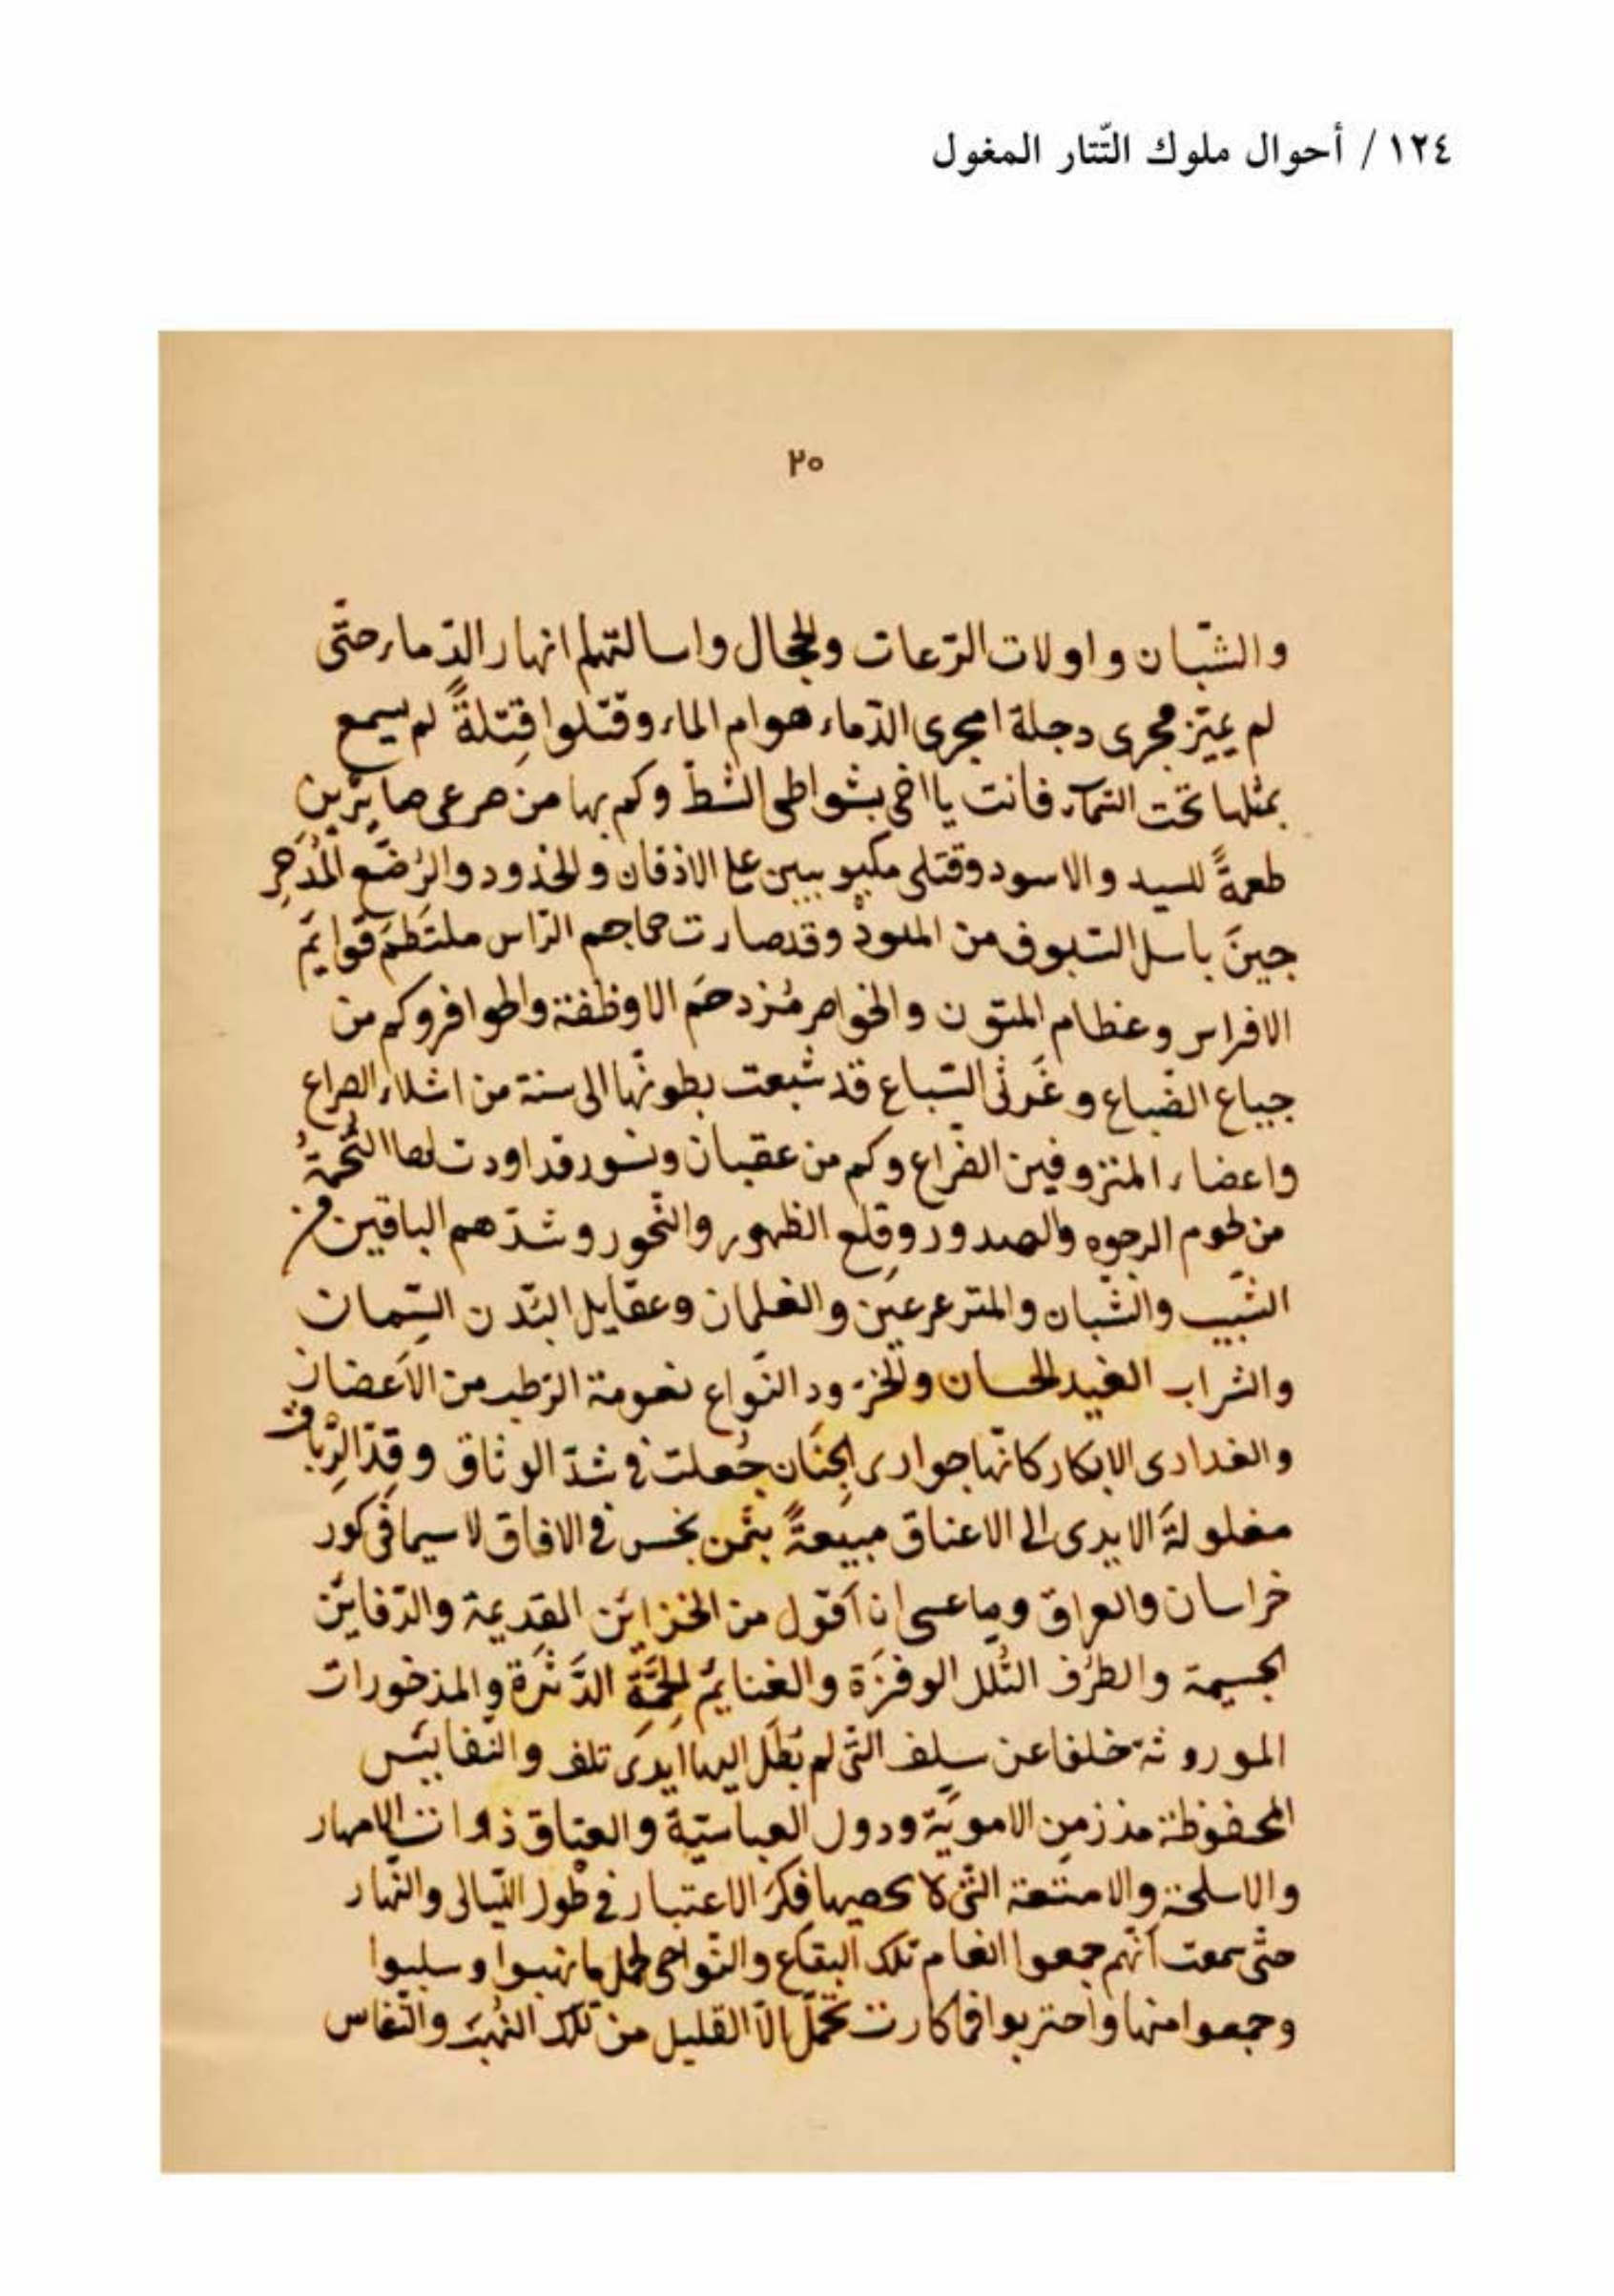 ١٢٤ / أحوال ملوك التّتار المغول
٢٠
والشبّان واولات الرّعات والحجال واسالتهلم انهار الدّماء حتّى
لم يميّز مجرى دجلة امجرى الدّماء هوام الماء وقتّلوا قِتلةً لم يسمع
بمثلها تحت السّمآء فانت يا اخى بشواطى الشطّ وكم بها من صرعى صايرين
طعمةً للسيد والاسود وقتلى مكبوبيين على الاذقان والخذود والرُضّع المُدَحرِ
جينَ باسل السّيوف من المهودْ وقد صارت جماجم الرّاس ملتَطَمَ قوايمّ
الافراس وعظام المتون والخواصر مُزدحَم الاوظفة والحوافر وكم من
جياع الضّباع وغَرثى السّباع قد شبعت بطونهّا الى سنة من اشلاء الصراع
واعضاء المنزوفين الضّراع وكم من عقبان ونسور قد اودت لها التُّخمةُ
من لحوم الوجوه والصدور وقِلع الظهور والنّحور وشدّهم الباقين من
الشّيب والشّبان والمترعرعين والغلمان وعقايل البُدن السّمان
والشراب الغيد الحسان والخرّود النّواع نعومة الرّطب من الاَعضان
والغدارى الابكار كانّها جوارى الجِنَان جُعلت فى شدّ الوثاق وقدّ الرِّباق
مغلولةَ الايدى الى الاعناق مبيعةً بثمن بخس فى الافاق لا سيما فى كور
خراسان والعراق وما عسى ان اَقول من الخزاين القديمة والدّفاين
الجسيمة والطرَف التُلل الوفرَة والغنايم الجَمَّةِ الدَّثرَة والمذخورات
الموروثة خلفا عن سلف التّى لم تطَل اليها اَيدىَ تلف والنّفاييس
المحفوظة مذ زمن الامويّة ودول العباسيّة والعتاق ذوات الامهار
والاسلحة والامتعة التّى لا يحصيها فكرَ الاعتبار فى طول اللّيالى والنّهار
حتّى سمعت اَنّهم جمعوا انعام تلك البقاع والنّواحى لحمل ما نهبوا وسلبوا
وجمعوا منها واحتربوا فما كارت تحمّل الاّ القليل من تلك النُهبَ والنّفاس